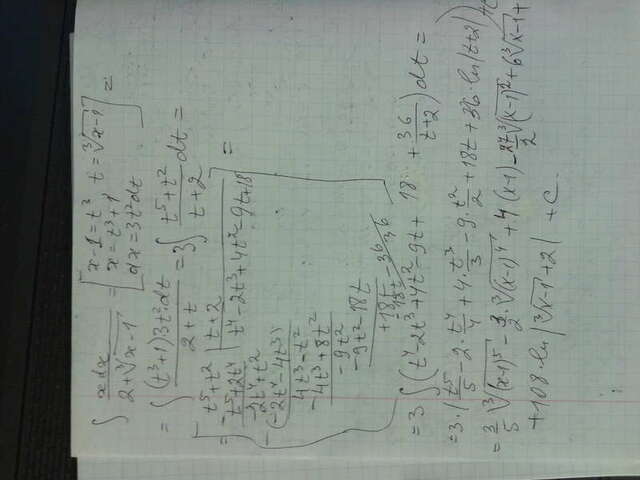 ∫ xdx / (2+∛(x-1)) = [x-1=t³ t=∛(x-1) x=t³+1 dx=3t²dt] =
= ∫ (t³+1)3t²dt / (2+t) = 3∫ (t⁵+t²)/(t+2) dt =
= [t⁵+t² | t+2
t⁵+2t⁴ | t⁴-2t³+4t²-9t+18
-2t⁴+t²
-(-2t⁴-4t³)
4t³-t²
-4t³+8t²
-9t²
-9t²-18t
+18t
-18t-36
36] =
= 3∫(t⁴-2t³+4t²-9t+18+36/(t+2))dt =
=3·(t⁵/5-2·t⁴/4+4·t³/3-9·t²/2+18t+36·ln|t+2|)+C
=3/5 ∛(x-1)⁵-3/2·∛(x-1)⁴+4(x-1)-27/2 ∛(x-1)²+6∛(x-1)+
+108·ln|∛(x-1)+2|+C.